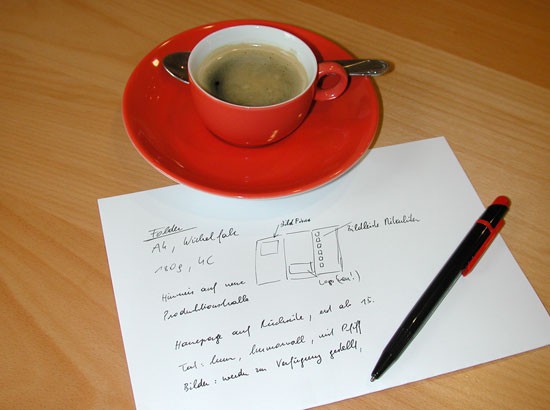 Folder
A4, Wickelfalz
180g, 4C
Bild Firma
Bildleiste Mitarbeiter
Logo (neu!)
Hinweis auf neue
Produktionshalle
Homepage auf Rückseite, erst ab 15.
Text: kurz, humorvoll, mit Pfiff
Bilder: werden zur Verfügung gestellt,